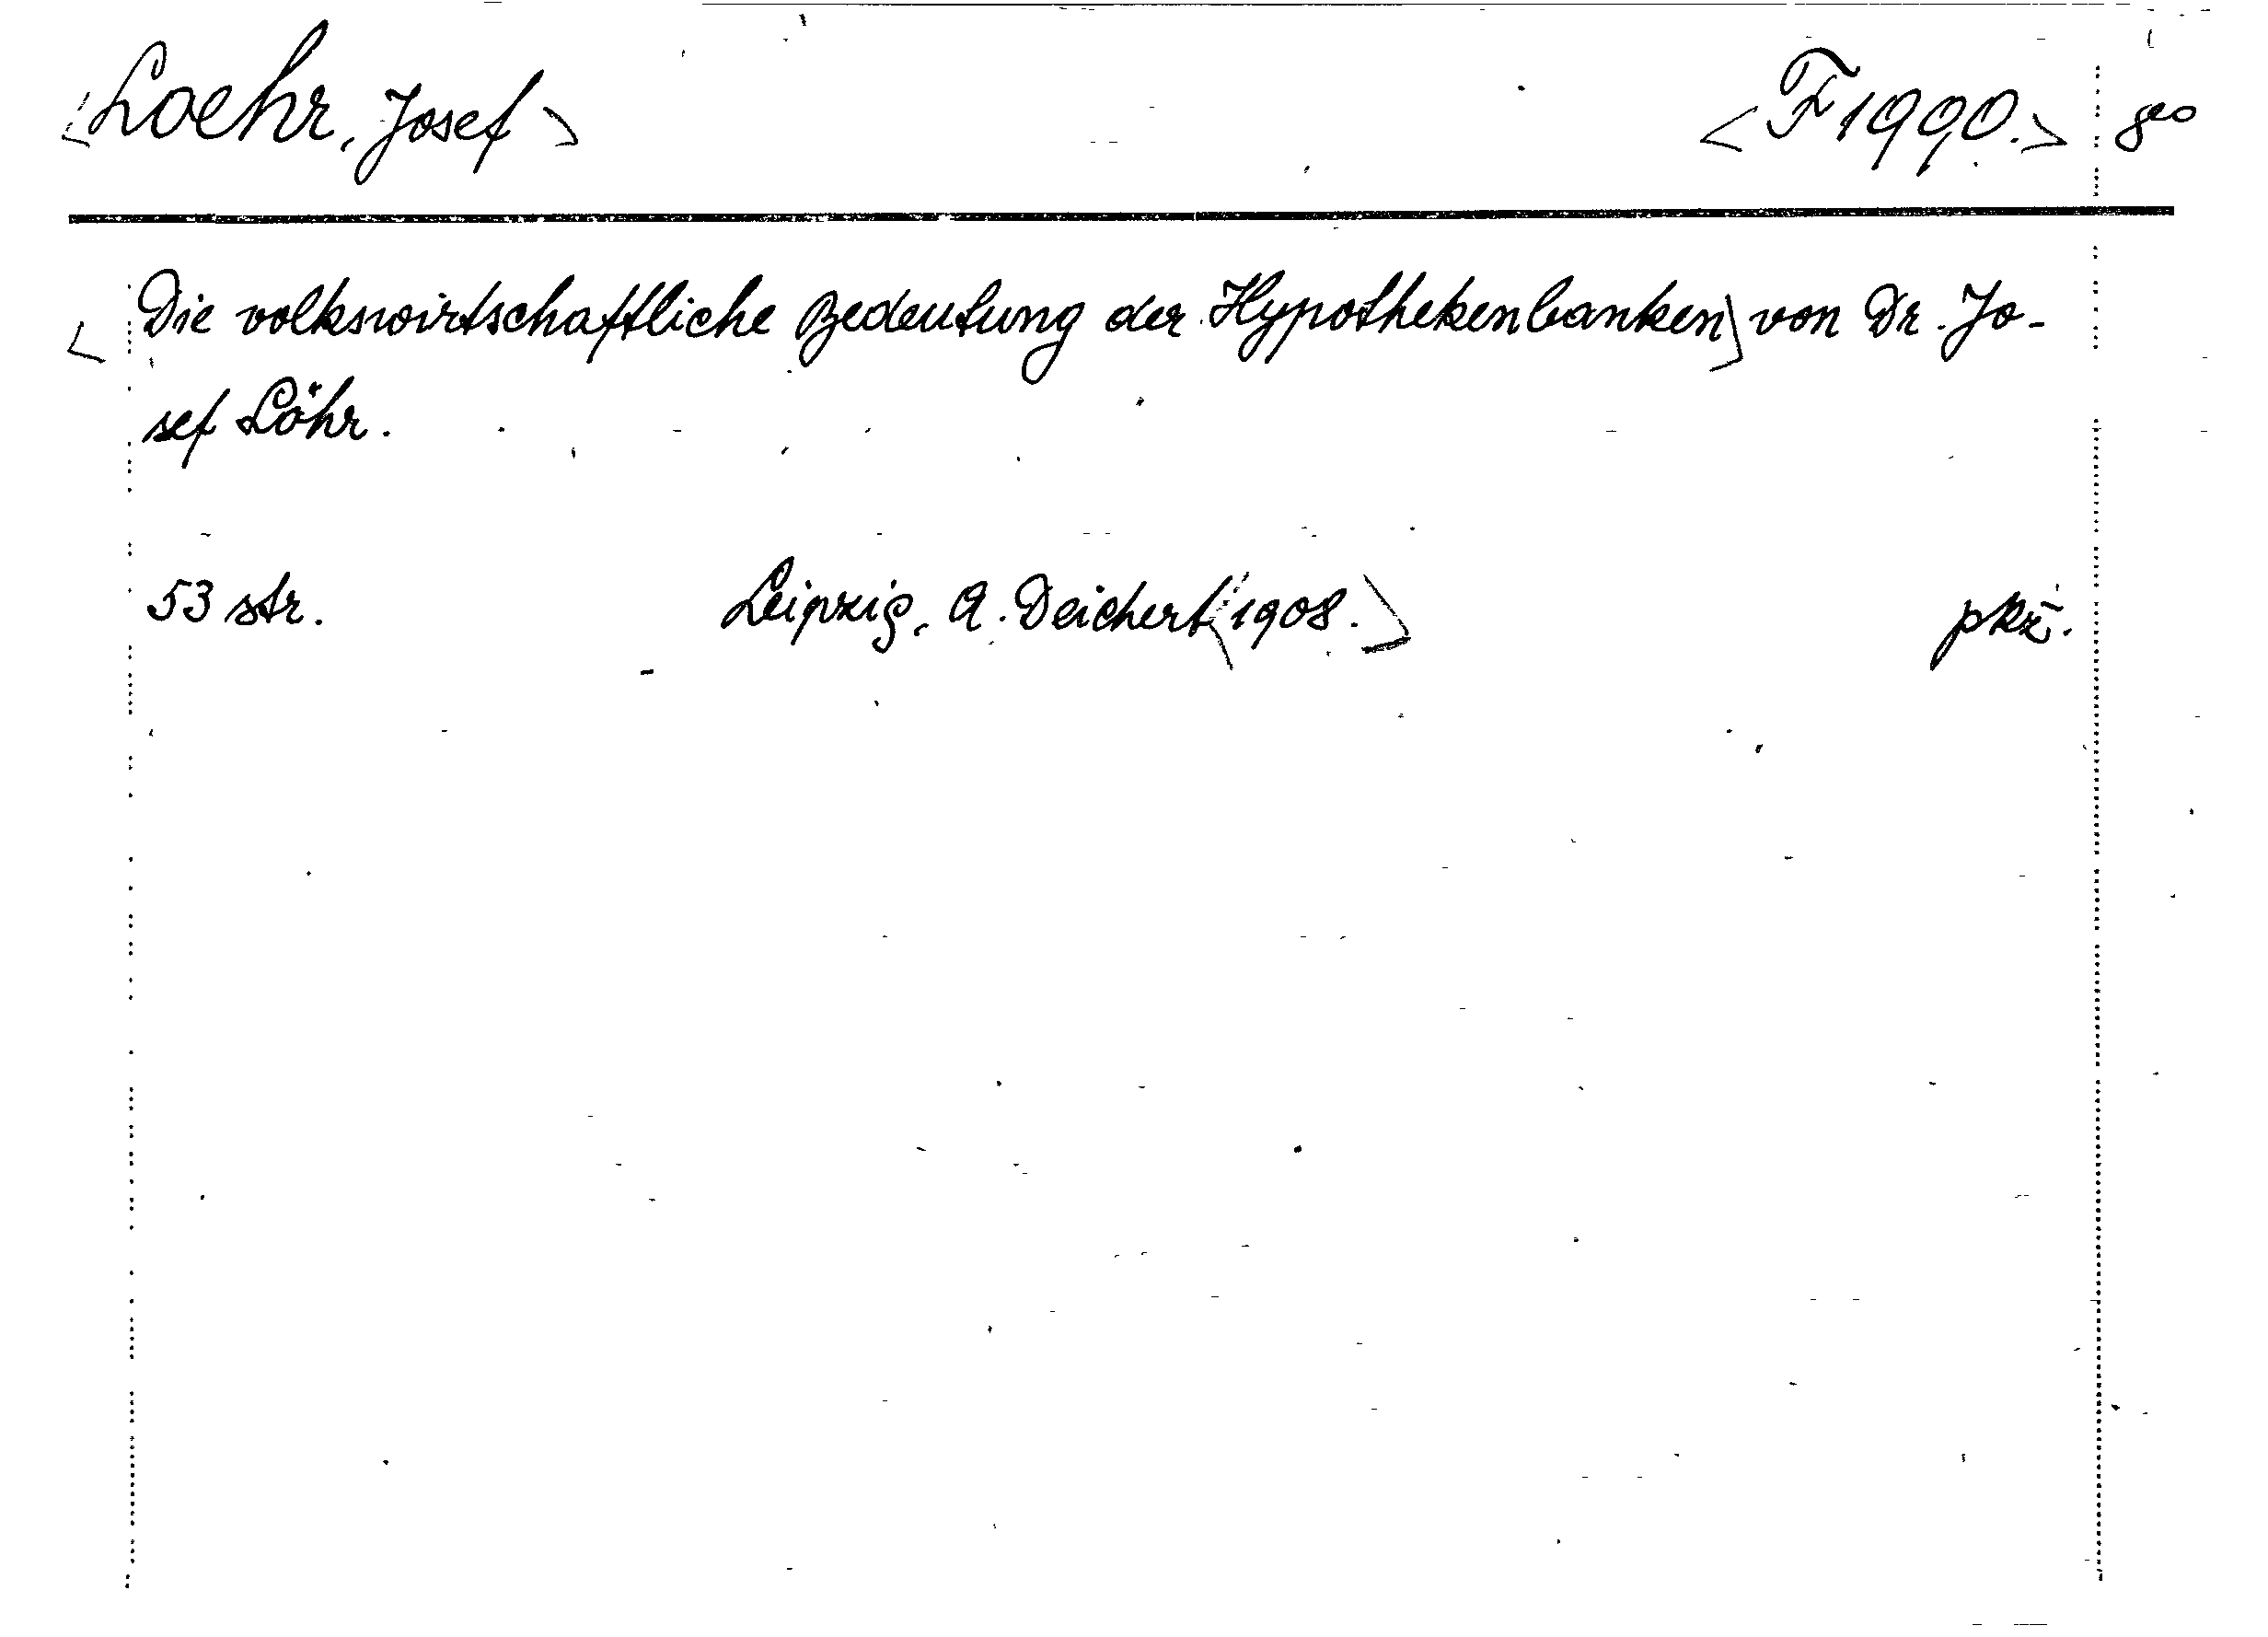 <Loehr, Josef> <F 1990.> 8°
<Die volkswirtschaftliche Bedeutung der Hypothekenbanken> von Dr. Jo-
sef Löhr.
53 str. Leipzig, A. Deichert <1908.> pkž.